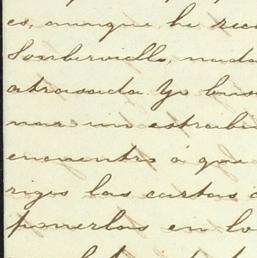 es, aunque he rec
Souberville, nada
atrasada Yo bus
nar un estrabi
encuentro á que
riges las cartas a
ponerlas en lo